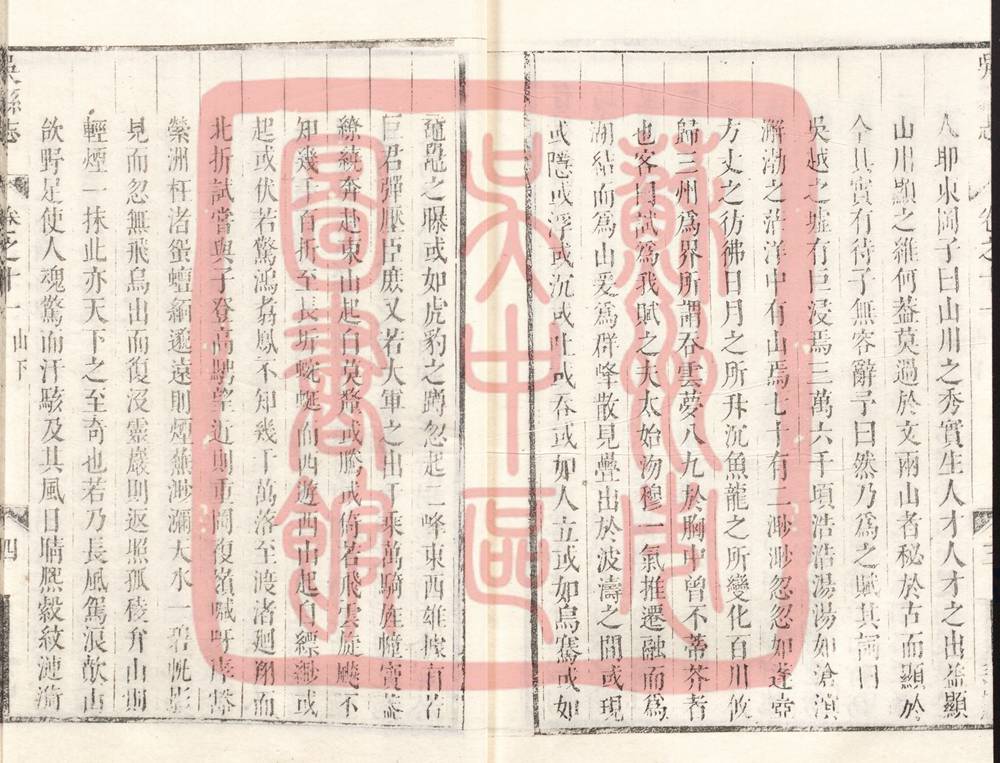 人耶東岡子曰山川之秀實生人才人才之出益顯
山川顯之維何蓋莫過於文兩山者秘於古而顯於
今其實有待子無容辭予曰然乃爲之賦其詞曰
吳越之墟有巨浸焉三萬六千頃浩浩湯湯如滄溟
澥渤之茫洋中有山焉七十有二渺渺忽忽如蓬壺
方丈之彷彿日月之所升沉魚龍之所變化百川攸
歸三州爲界所謂吞雲夢八九於胸中曾不蔕芥者
也客曰試爲我賦之夫太始沕穆一氣推遷融而爲
湖結而爲山爰爲群峰散見疊出於波濤之間或現
或隱或浮或沉或吐或吞或如人立或如鳥騫或如
黿鼉之曝或如虎豹之蹲忽起二峰東西雄據有若
巨君彈壓臣庶又若大軍之出千乘萬騎旌幢寶蓋
繚繞奔赴東山起自莫釐或騰或倚若飛雲旋飈不
知幾千百折至長圻蜿蜒而西逝西山起自縹緲或
起或伏若驚鴻翥鳳不知幾千萬落至渡渚廻翔而
北折試嘗與子登高騁望近則重岡複嶺喊呀庨豁
縈洲枉渚蜑蟺緬邈遠則煙蕪渺瀰大水一碧帆影
見而忽無飛鳥出而復沒靈巖則返照孤稜弁山則
輕煙一抹此亦天下之至奇也若乃長風駕浪歕山
欱野足使人魂驚而汗駭及其風日晴熙縠紋漣漪
吳縣志
卷之十一
山下
四
蘇州市
吳中區
圖書館